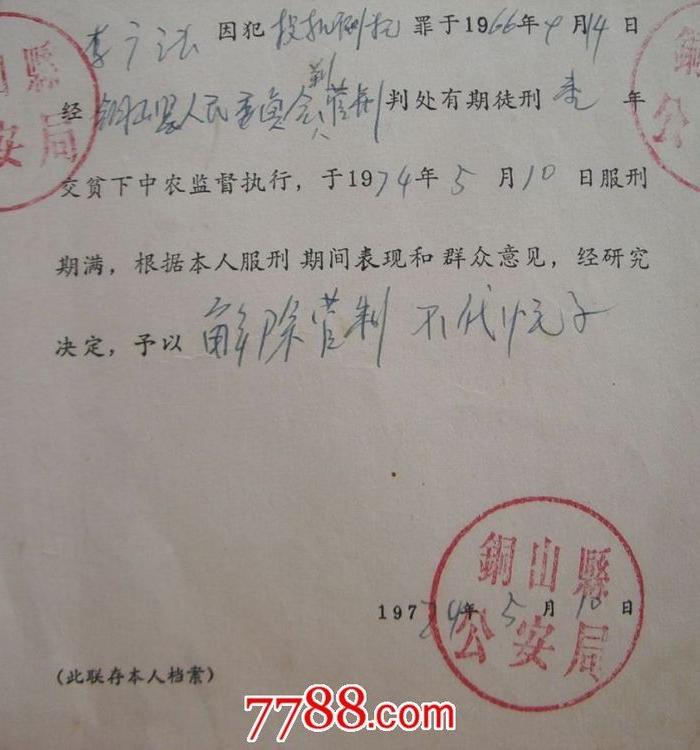 李广法 因犯 投机倒把 罪于1966年9月14日
经 铜山县人民委员会 管制 判处有期徒刑 年
交贫下中农监督执行，于1974年5月10日服刑
期满，根据本人服刑期间表现和群众意见，经研究
决定，予以 解除管制 不代帽子
1974年5月10日
(此联存本人档案)
銅山縣
公安局
7788.com